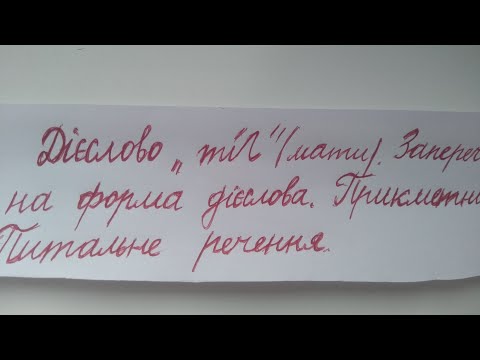 Дієслово „ mít"(мати). Запереч
на форма дієслова. Прикметни
Питальне речення.